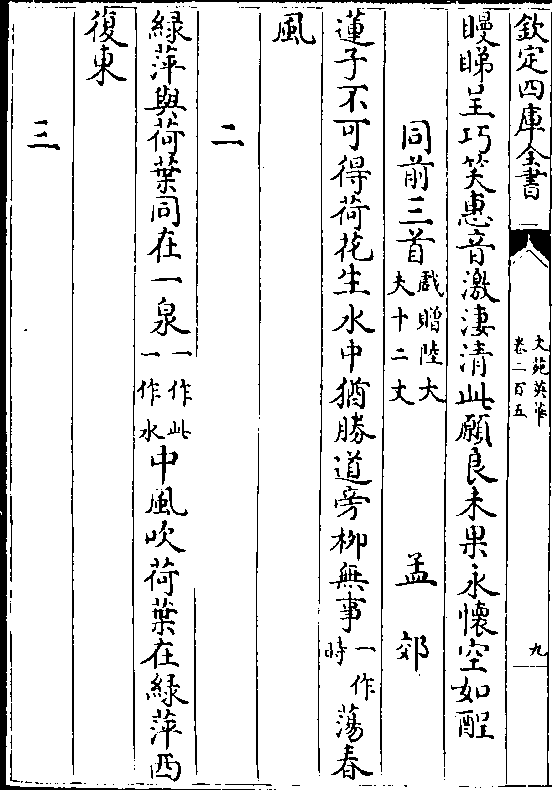 欽定四庫全書
文苑英華
卷二百五
九
矊睇呈巧笑惠音激淒清此願良未果永懷空如酲
同前三首戲贈陸大夫十二丈 孟郊
蓮子不可得荷花生水中猶勝道旁柳無事一作時蕩春
風
二
綠萍與荷葉同在一泉一作此一作水中風吹荷葉在綠萍西
復東
三